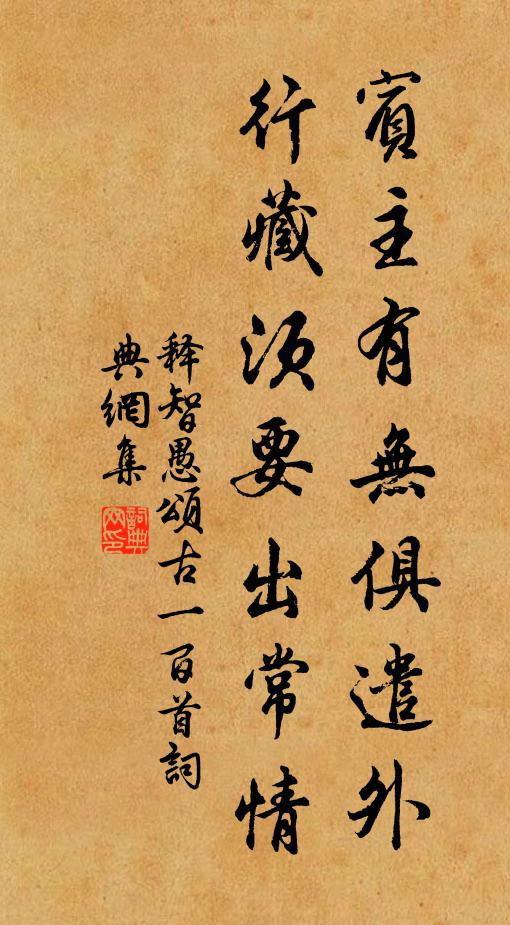 賓主有無俱遣外
行藏須要出常情
释智愚頌古一百首詞
典網集